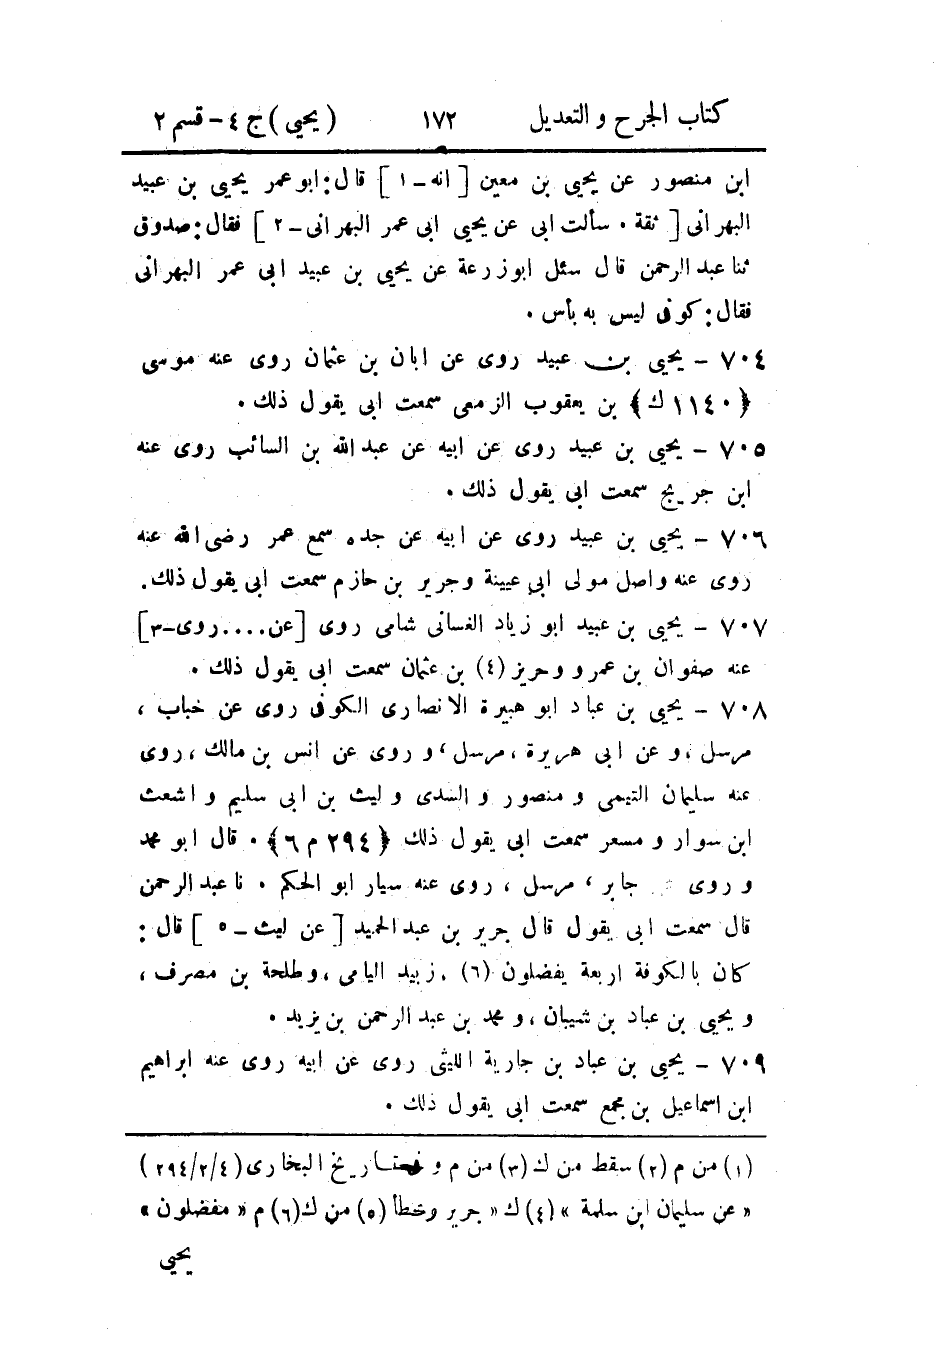 كتاب الجرح و التعديل ١٧٢ (يحيى) ج ٤ – قسم ٢
ابن منصور عن يحيى بن معين [ انه – ١ ] قال: ابو عمر يحيى بن عبيد
البهرانى [ ثقة . سألت ابى عن يحيى ابى عمر البهرانى – ٢ ] فقال: صدوق
ثنا عبد الرحمن قال سئل ابو زرعة عن يحيى بن عبيد ابى عمر البهرانى
فقال: كوفى ليس به بأس .
٧٠٤ – يحيى بن عبيد روى عن ابان بن عثمان روى عنه موسى
﴿١١٤٠ ك﴾ بن يعقوب الزمعى سمعت ابى يقول ذلك .
٧٠٥ – يحيى بن عبيد روى عن ابيه عن عبد الله بن السائب روى عنه
ابن جريج سمعت ابى يقول ذلك .
٧٠٦ – يحيى بن عبيد روى عن ابيه عن جده سمع عمر رضى الله عنه
روى عنه واصل مولى ابى عيينة وجرير بن حازم سمعت ابى يقول ذلك .
٧٠٧ – يحيى بن عبيد ابو زياد الغسانى شامى روى [عن .... روى – ٣]
عنه صفوان بن عمرو وحريز (٤) بن عثمان سمعت ابى يقول ذلك .
٧٠٨ – يحيى بن عباد ابو هبيرة الانصارى الكوفى روى عن خباب ،
مرسل ، و عن ابى هريرة ، مرسل ، و روى عن انس بن مالك ، روى
عنه سليمان التيمى و منصور و السدى و ليث بن ابى سليم و اشعث
ابن سوار و مسعر سمعت ابى يقول ذلك ﴿٢٩٤ م ٦﴾ . قال ابو محمد
و روى عن جابر ، مرسل ، روى عنه سيار ابو الحكم . نا عبد الرحمن
قال سمعت ابى يقول قال جرير بن عبد الحميد [ عن ليث – ٥ ] قال :
كان بالكوفة اربعة يفضلون (٦) . زبيد اليامى ، وطلحة بن مصرف ،
و يحيى بن عباد بن شيبان ، و محمد بن عبد الرحمن بن يزيد .
٧٠٩ – يحيى بن عباد بن جارية الليثى روى عن ابيه روى عنه ابراهيم
ابن اسماعيل بن مجمع سمعت ابى يقول ذلك .
(١) من م (٢) سقط من ك (٣) من م و فى تاريخ البخارى (٢٩٤/٢/٤)
« عن سليمان ابن سلمة » (٤) ك « جرير وخطأ (٥) من ك (٦) م « مفضلون »
يحيى